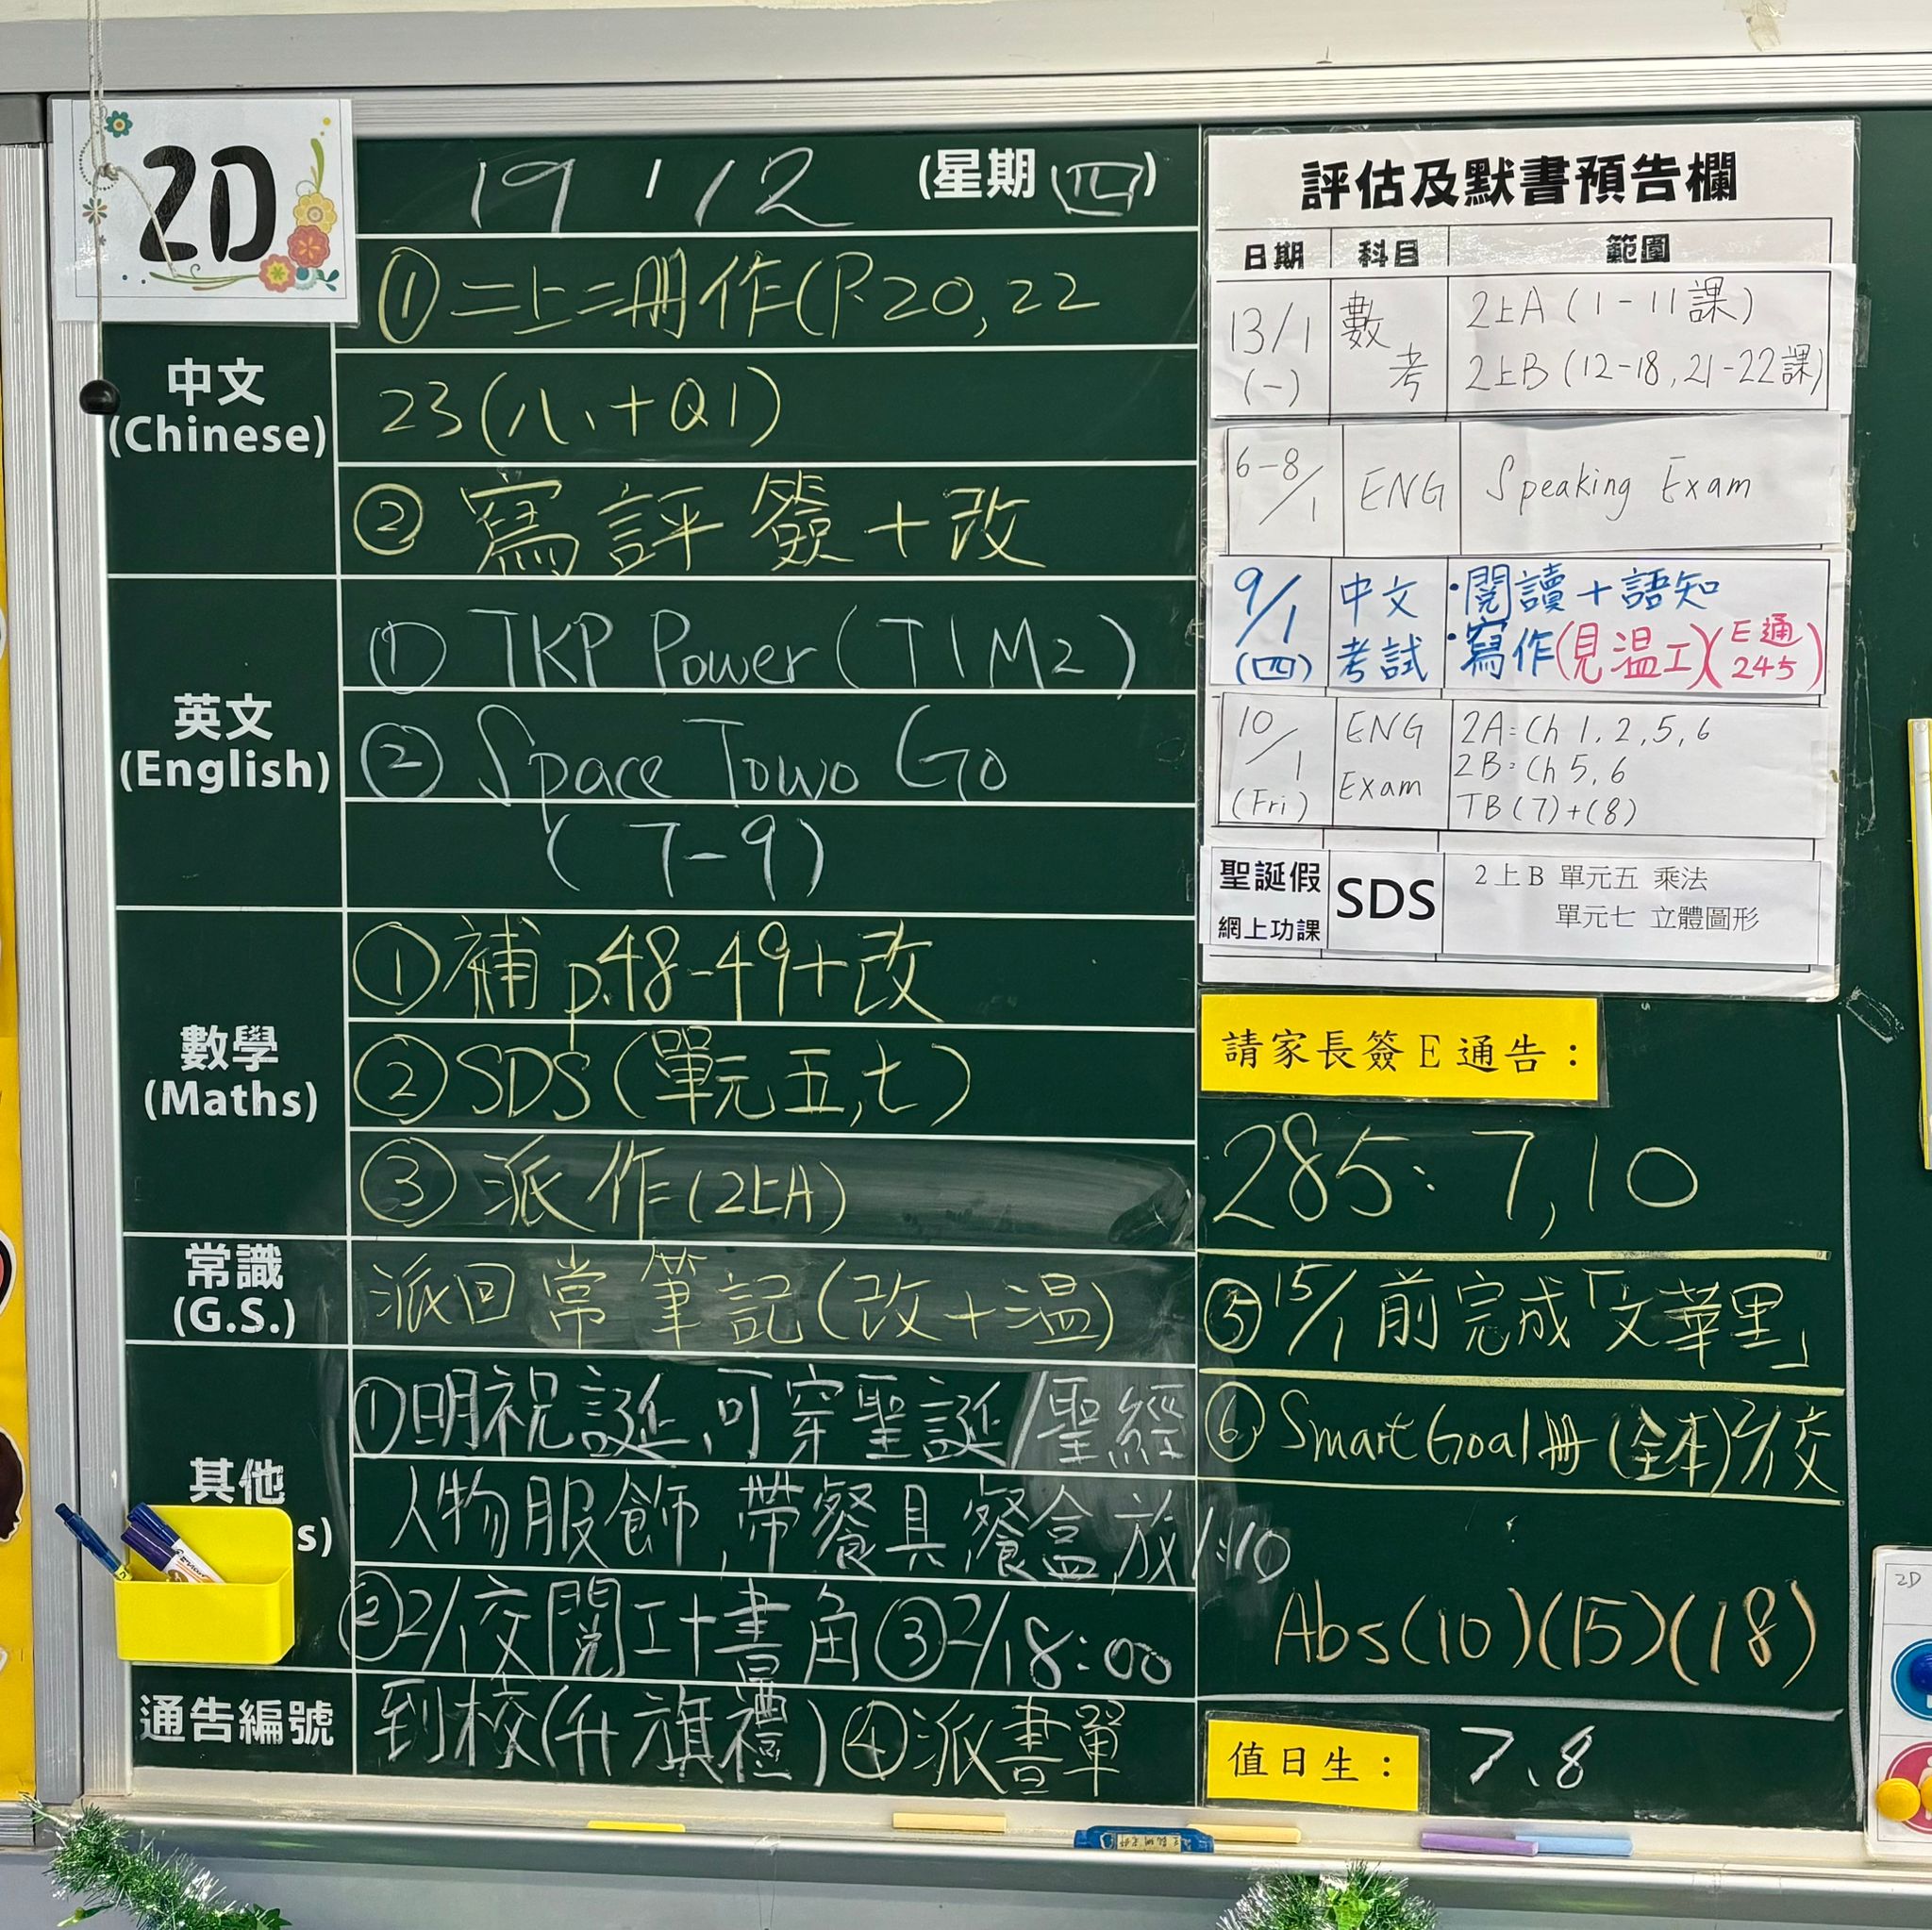 2D
19 / 12 (星期 四)
中文
(Chinese)
① 二上二冊作(P.20, 22
23(八、十Q1)
② 寫評簽+改
英文
(English)
① TKP Power (T1M2)
② Space Town Go
(7-9)
數學
(Maths)
① 補 p.48-49+改
② SDS (單元五,七)
③ 派作(2上A)
常識
(G.S.)
派回常筆記(改+温)
其他
s)
①明祝誕,可穿聖誕/聖經
人物服飾,帶餐具餐盒,放11:10
②2/1交閱工+書角③2/1 8:00
通告編號
到校(升旗禮)④派書單
評估及默書預告欄
日期 科目 範圍
13/1 (一) 數考 2上A (1-11課)
2上B (12-18, 21-22課)
6-8/1 ENG Speaking Exam
9/1 (四) 中文考試 ·閱讀+語知
·寫作(見温工)(E通245)
10/1 (Fri) ENG Exam 2A: Ch 1, 2, 5, 6
2B: Ch 5, 6
TB (7)+(8)
聖誕假
網上功課
SDS
2上B 單元五 乘法
單元七 立體圖形
請家長簽E通告:
285: 7, 10
⑤ 15/1 前完成「文華里」
⑥ Smart Goal冊 (全本) 2/1交
Abs (10)(15)(18)
值日生: 7、8